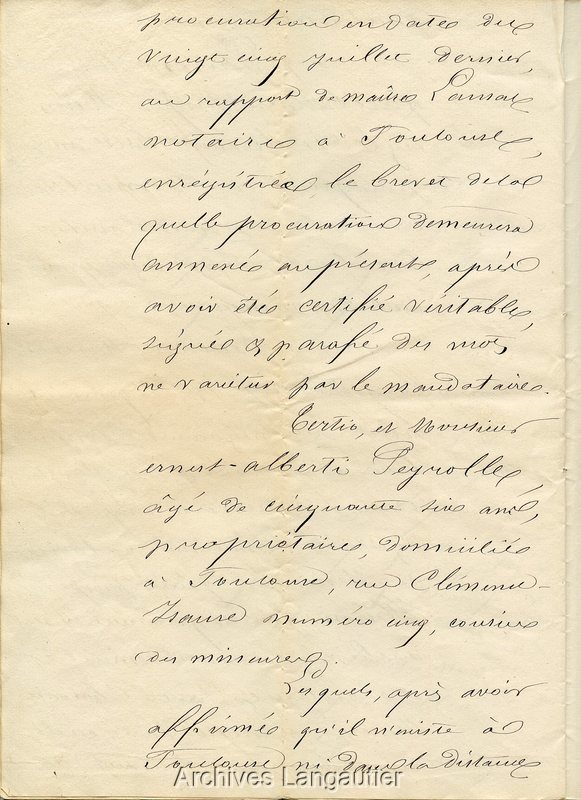 procuration en date du
vingt cinq juillet dernier,
au rapport de maître
notaire à Toulouse,
enregistrée, le brevet de la
quelle procuration demeurera
annexé au présent, après
avoir été certifié véritable,
signé & parafé des mots
ne varietur par le mandataire.
Tertio, et Monsieur
ernest-albert Peyrolle,
âgé de cinquante six ans,
propriétaire, domicilié
à Toulouse, rue Clémence-
Isaure numéro cinq, cousin
des mineures.
Lesquels, après avoir
affirmé qu'il n'existe à
Toulouse ni dans la distance
Archives Langautier